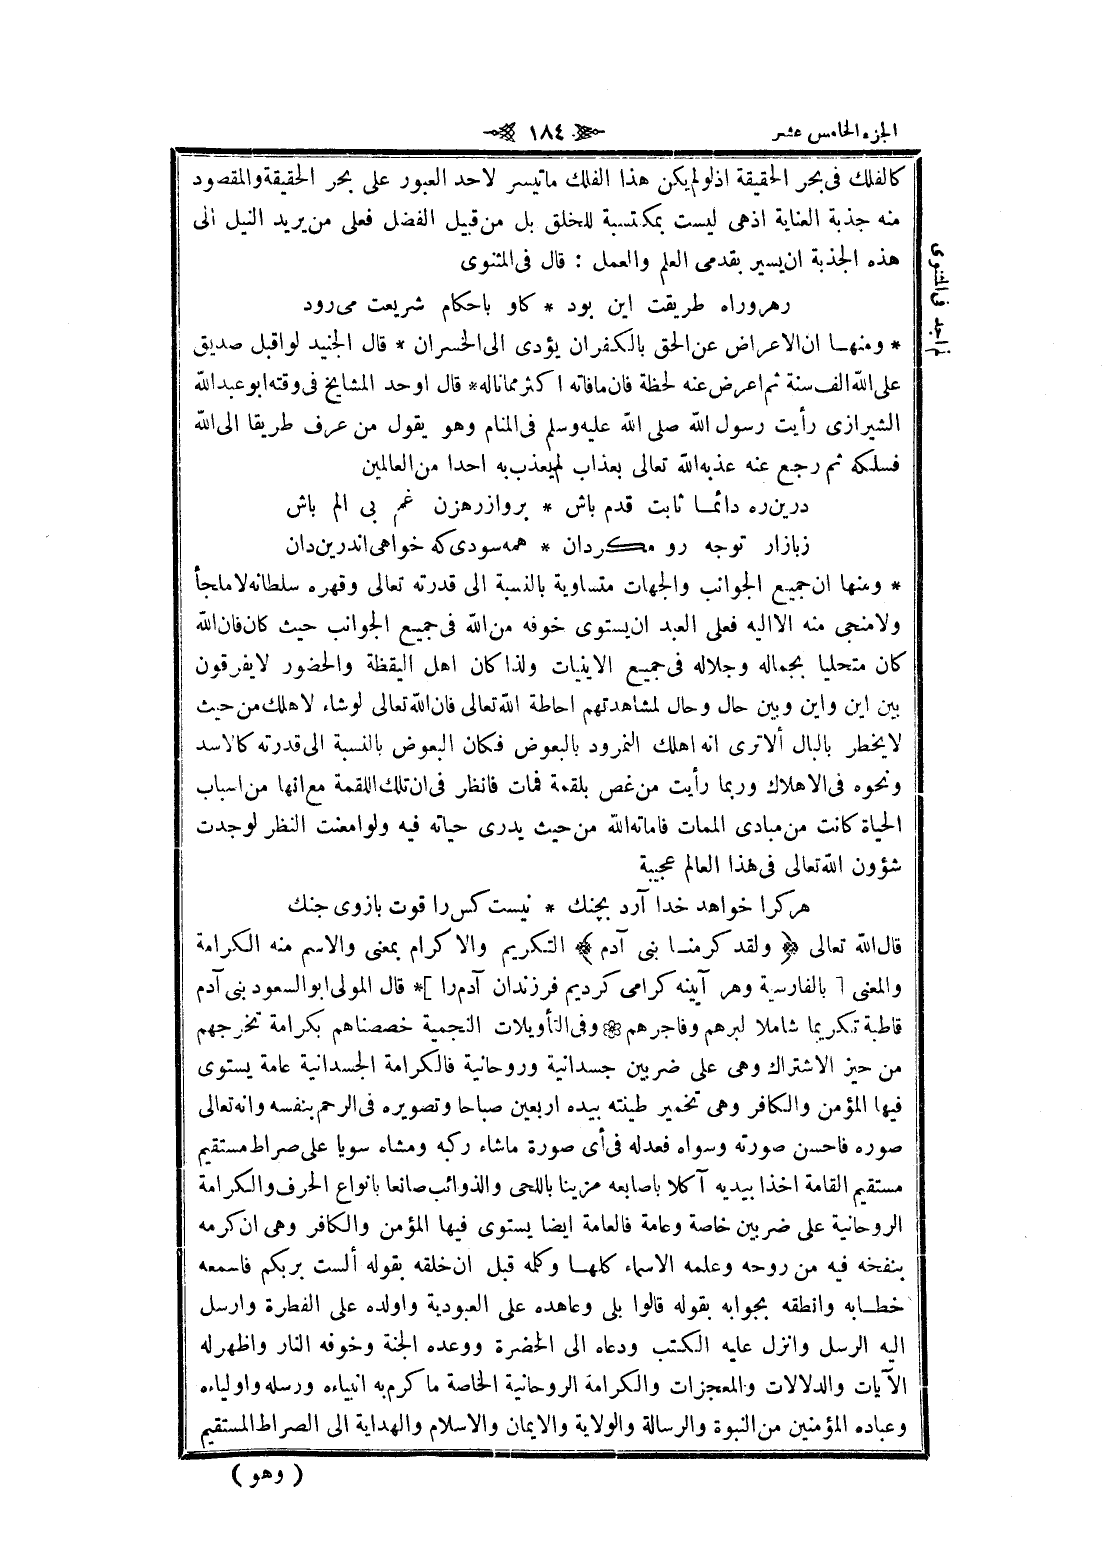 الجزء الخامس عشر
١٨٤
كالفلك فى بحر الحقيقة اذلولم يكن هذا الفلك ماتيسر لاحد العبور على بحر الحقيقة والمقصود
منه جذبة العناية اذهى ليست بمكتسبة للخلق بل من قبيل الفضل فعلى من يريد النيل الى
هذه الجذبة ان يسير بقدمى العلم والعمل : قال فى المثنوى
رهرو راه طريقت اين بود * كاو باحكام شريعت مى رود
* ومنهـا ان الاعراض عن الحق بالكفران يؤدى الى الخسران * قال الجنيد لو اقبل صديق
على الله الف سنة ثم اعرض عنه لحظة فان مافاته اكثر مماناله * قال اوحد المشايخ فى وقته ابو عبد الله
الشيرازى رأيت رسول الله صلى الله عليه وسلم فى المنام وهو يقول من عرف طريقا الى الله
فسلكه ثم رجع عنه عذبه الله تعالى بعذاب لم يعذب به احدا من العالمين
درين ره دائمـا ثابت قدم باش * برو از رهزن غم بى الم باش
زبازار توجه رو مكردان * همه سودى كه خواهى اندرين دان
* ومنها ان جميع الجوانب والجهات متساوية بالنسبة الى قدرته تعالى وقهره سلطانه لا ملجأ
ولامنجى منه الااليه فعلى العبد ان يستوى خوفه من الله فى جميع الجوانب حيث كان فان الله
كان متحليا بجماله وجلاله فى جميع الاينيات ولذا كان اهل اليقظة والحضور لايفرقون
بين اين واين وبين حال وحال لمشاهدتهم احاطة الله تعالى فان الله تعالى لوشاء لاهلك من حيث
لايخطر بالبال ألاترى انه اهلك النمرود بالبعوض فكان البعوض بالنسبة الى قدرته كالاسد
ونحوه فى الاهلاك وربما رأيت من غص بلقمة فمات فانظر فى ان تلك اللقمة مع انها من اسباب
الحياة كانت من مبادى الممات فاماته الله من حيث يدرى حياته فيه ولو امعنت النظر لوجدت
شؤون الله تعالى فى هذا العالم عجيبة
هركرا خواهد خدا آرد بجنك * نيست كس را قوت بازوى جنك
قال الله تعالى ﴿ ولقد كرمنـا بنى آدم ﴾ التكريم والاكرام بمعنى والاسم منه الكرامة
والمعنى [ بالفارسية وهر آيينه كرامى كرديم فرزندان آدم را ] * قال المولى ابو السعود بنى آدم
قاطبة تكريما شاملا لبرهم وفاجرهم ۞ وفى التأويلات النجمية خصصناهم بكرامة تخرجهم
من حيز الاشتراك وهى على ضربين جسدانية وروحانية فالكرامة الجسدانية عامة يستوى
فيها المؤمن والكافر وهى تخمير طينته بيده اربعين صباحا وتصويره فى الرحم بنفسه وانه تعالى
صوره فاحسن صورته وسواه فعدله فى أى صورة ماشاء ركبه ومشاه سويا على صراط مستقيم
مستقيم القامة اخذا بيديه آكلا باصابعه مزينا باللحى والذوائب صانعا بانواع الحرف والكرامة
الروحانية على ضربين خاصة وعامة فالعامة ايضا يستوى فيها المؤمن والكافر وهى ان كرمه
بنفخه فيه من روحه وعلمه الاسماء كلهـا وكلمه قبل ان خلقه بقوله ألست بربكم فاسمعه
خطـابه وانطقه بجوابه بقوله قالوا بلى وعاهده على العبودية واولده على الفطرة وارسل
اليه الرسل وانزل عليه الكتب ودعاه الى الحضرة ووعده الجنة وخوفه النار واظهر له
الآيات والدلالات والمعجزات والكرامة الروحانية الخاصة ماكرم به انبياءه ورسله واولياءه
وعباده المؤمنين من النبوة والرسالة والولاية والايمان والاسلام والهداية الى الصراط المستقيم
( وهو )